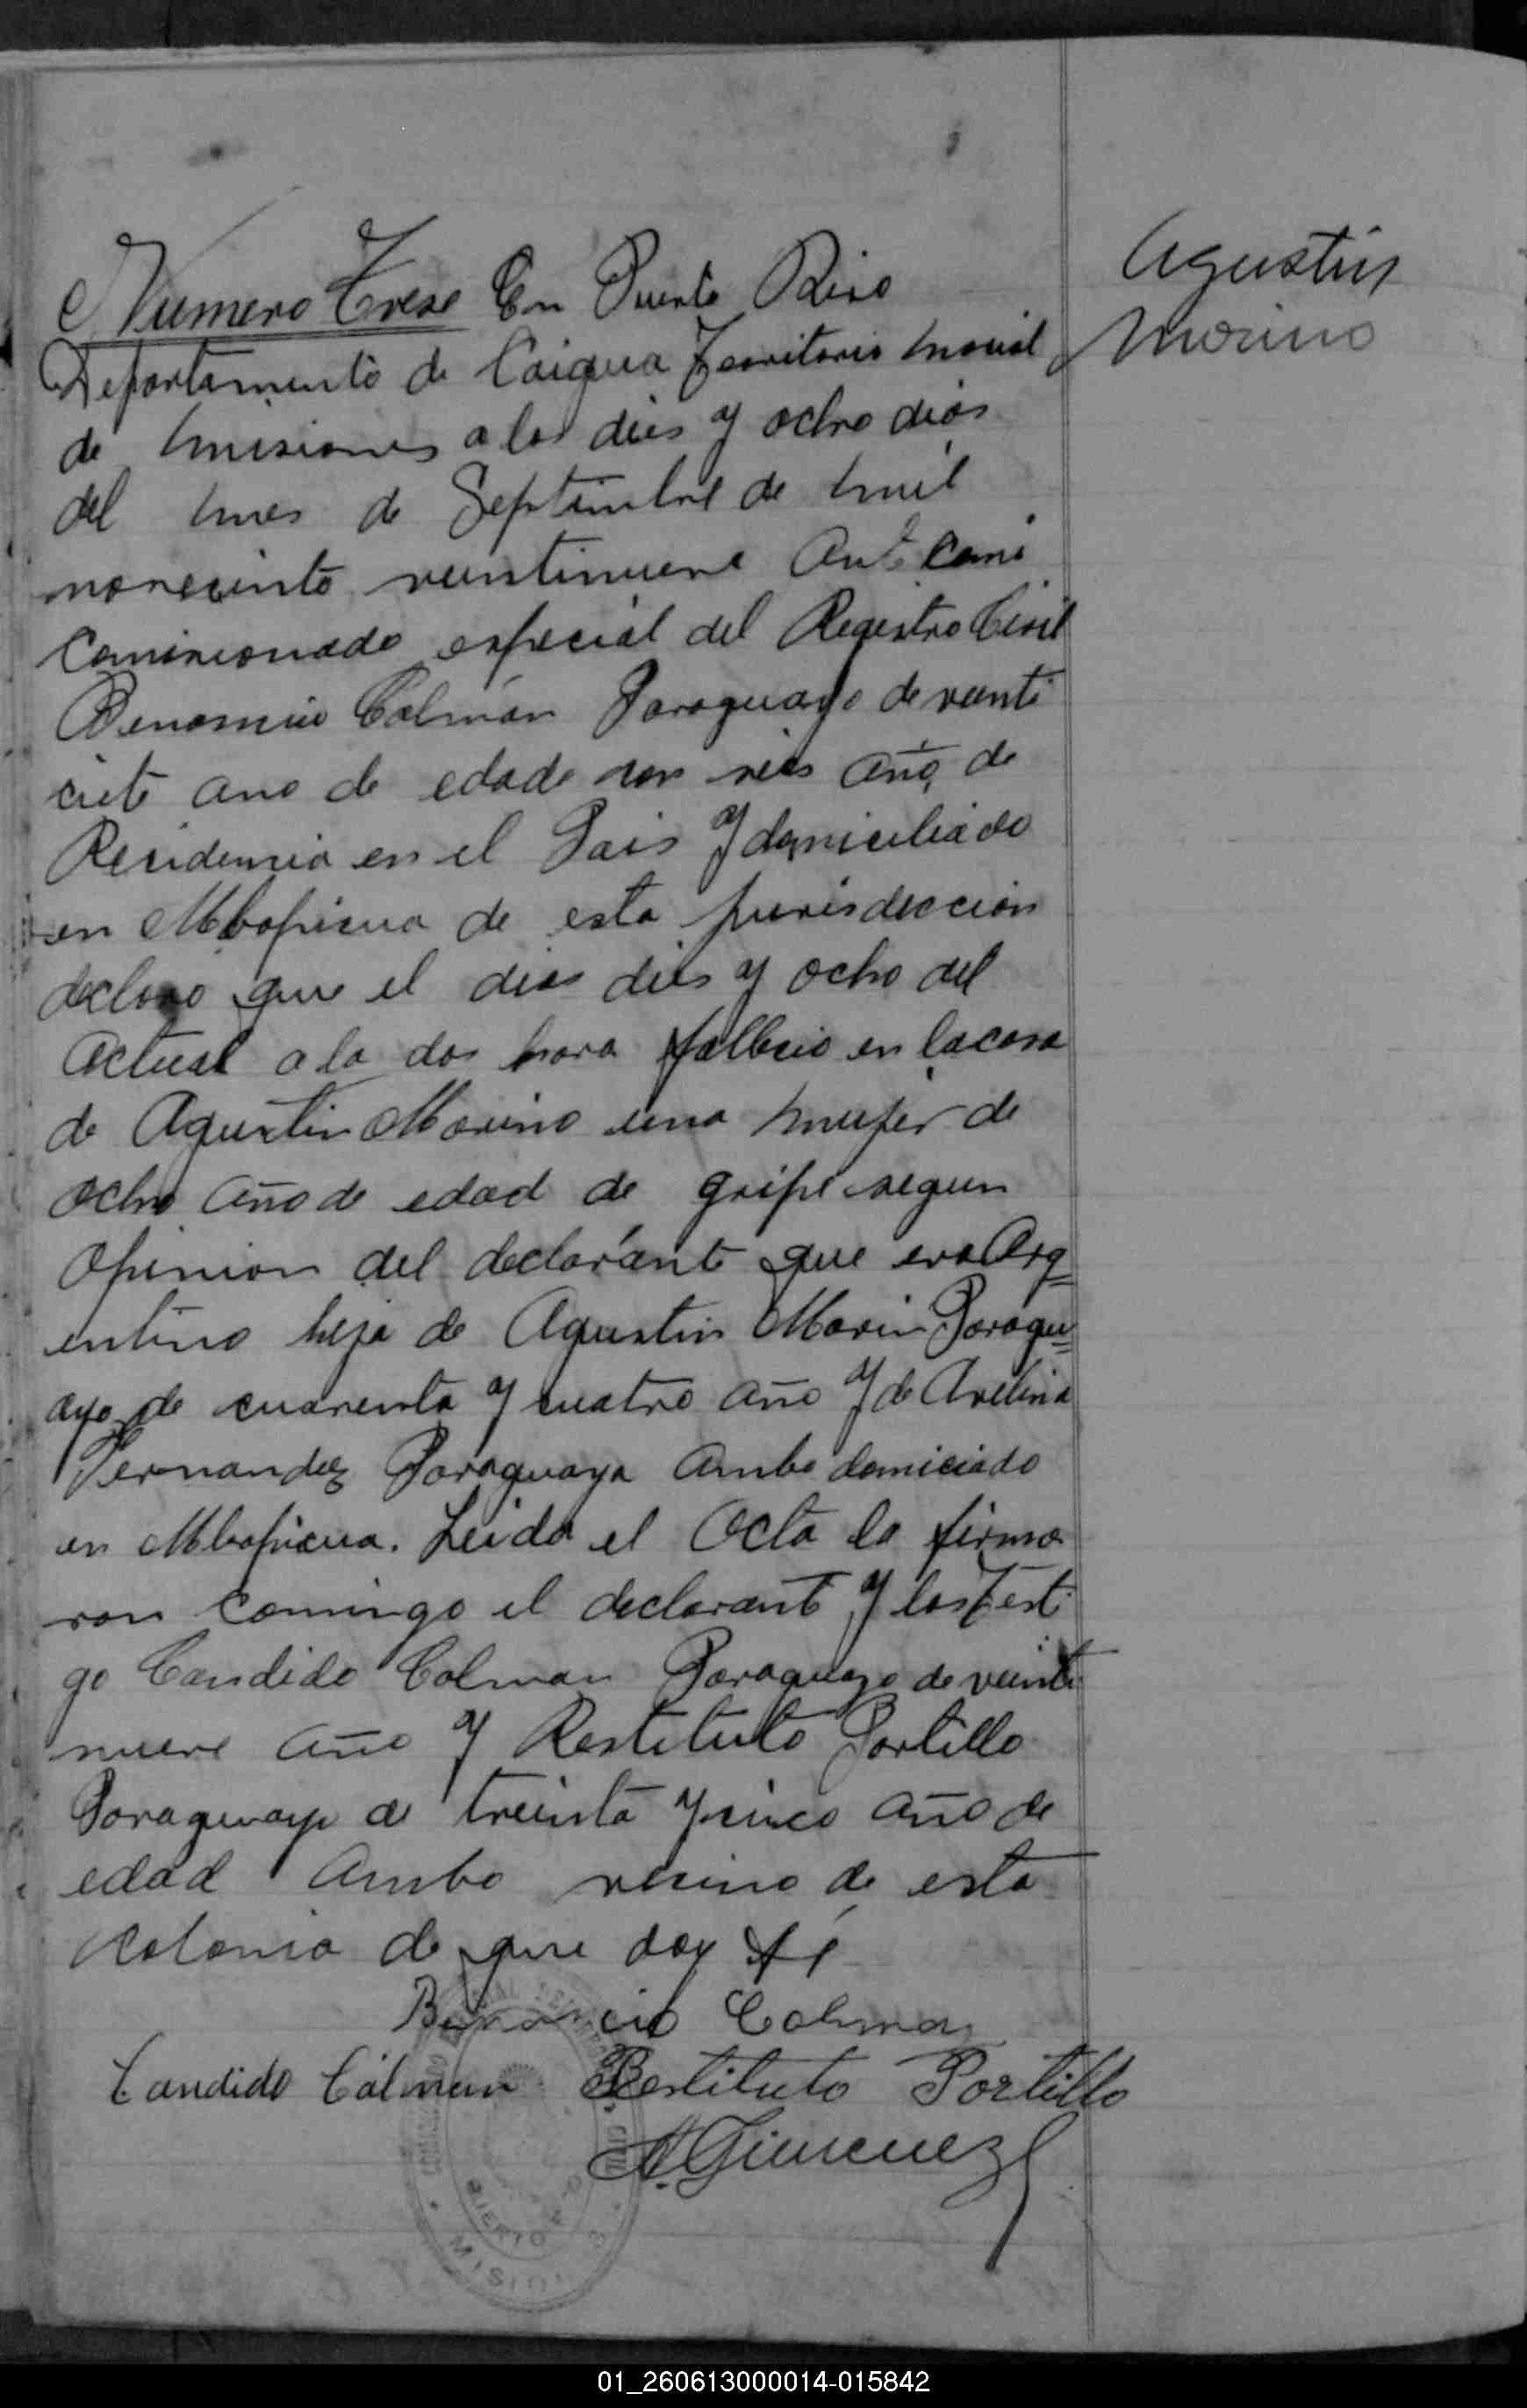 Agustin
Morino
Numero Trese En Puerto Rico
Departamento de Caigua Territorio nacial
de misiones a los dies y ocho dias
del mes de Septimbre de mil
novecinto veintinueve Ante
Comicionado especial del Registro Civil
Benancio Colmán Paraguayo de veinti
ciete ano de edade con seis año de
Recidencia en el Pais y domiciliado
en Mbopicua de esta jurisdeccion
declaro que el dias dies y ocho del
Actual a la dos hora fallecio en la casa
de Agustin Morino una mujer de
ocho año de edad de gripe segun
Opinion del declarante que era Arg
entino heja de Agustin Morin Paragu
ayo de cuarenta y cuatro año y de Avelina
Fernandez Paraguaya Ambo domiciado
en Mbopicua. Leido el Acta la firma
ron comingo el declarante y los testi
go Candido Colman Paraguayo de veinti
nueve año y Restituto Portillo
Paraguayo de treinta y cinco año de
edad Ambo vecino de esta
Colonia de que doy fé
Benancio Colman
Candido Cólman Restituto Portillo
A. Gimenez
MISIONES
01_260613000014-015842